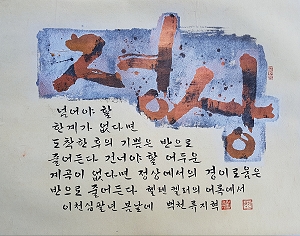 정상
넘어야 할
한계가 없다면
도착한 후의 기쁨은 반으로
줄어든다. 건너야 할 어두운
계곡이 없다면 정상에서의 경이로움은
반으로 줄어든다. 헬렌 켈러의 어록에서
이천십팔년 봄날에 벽천 류지혁